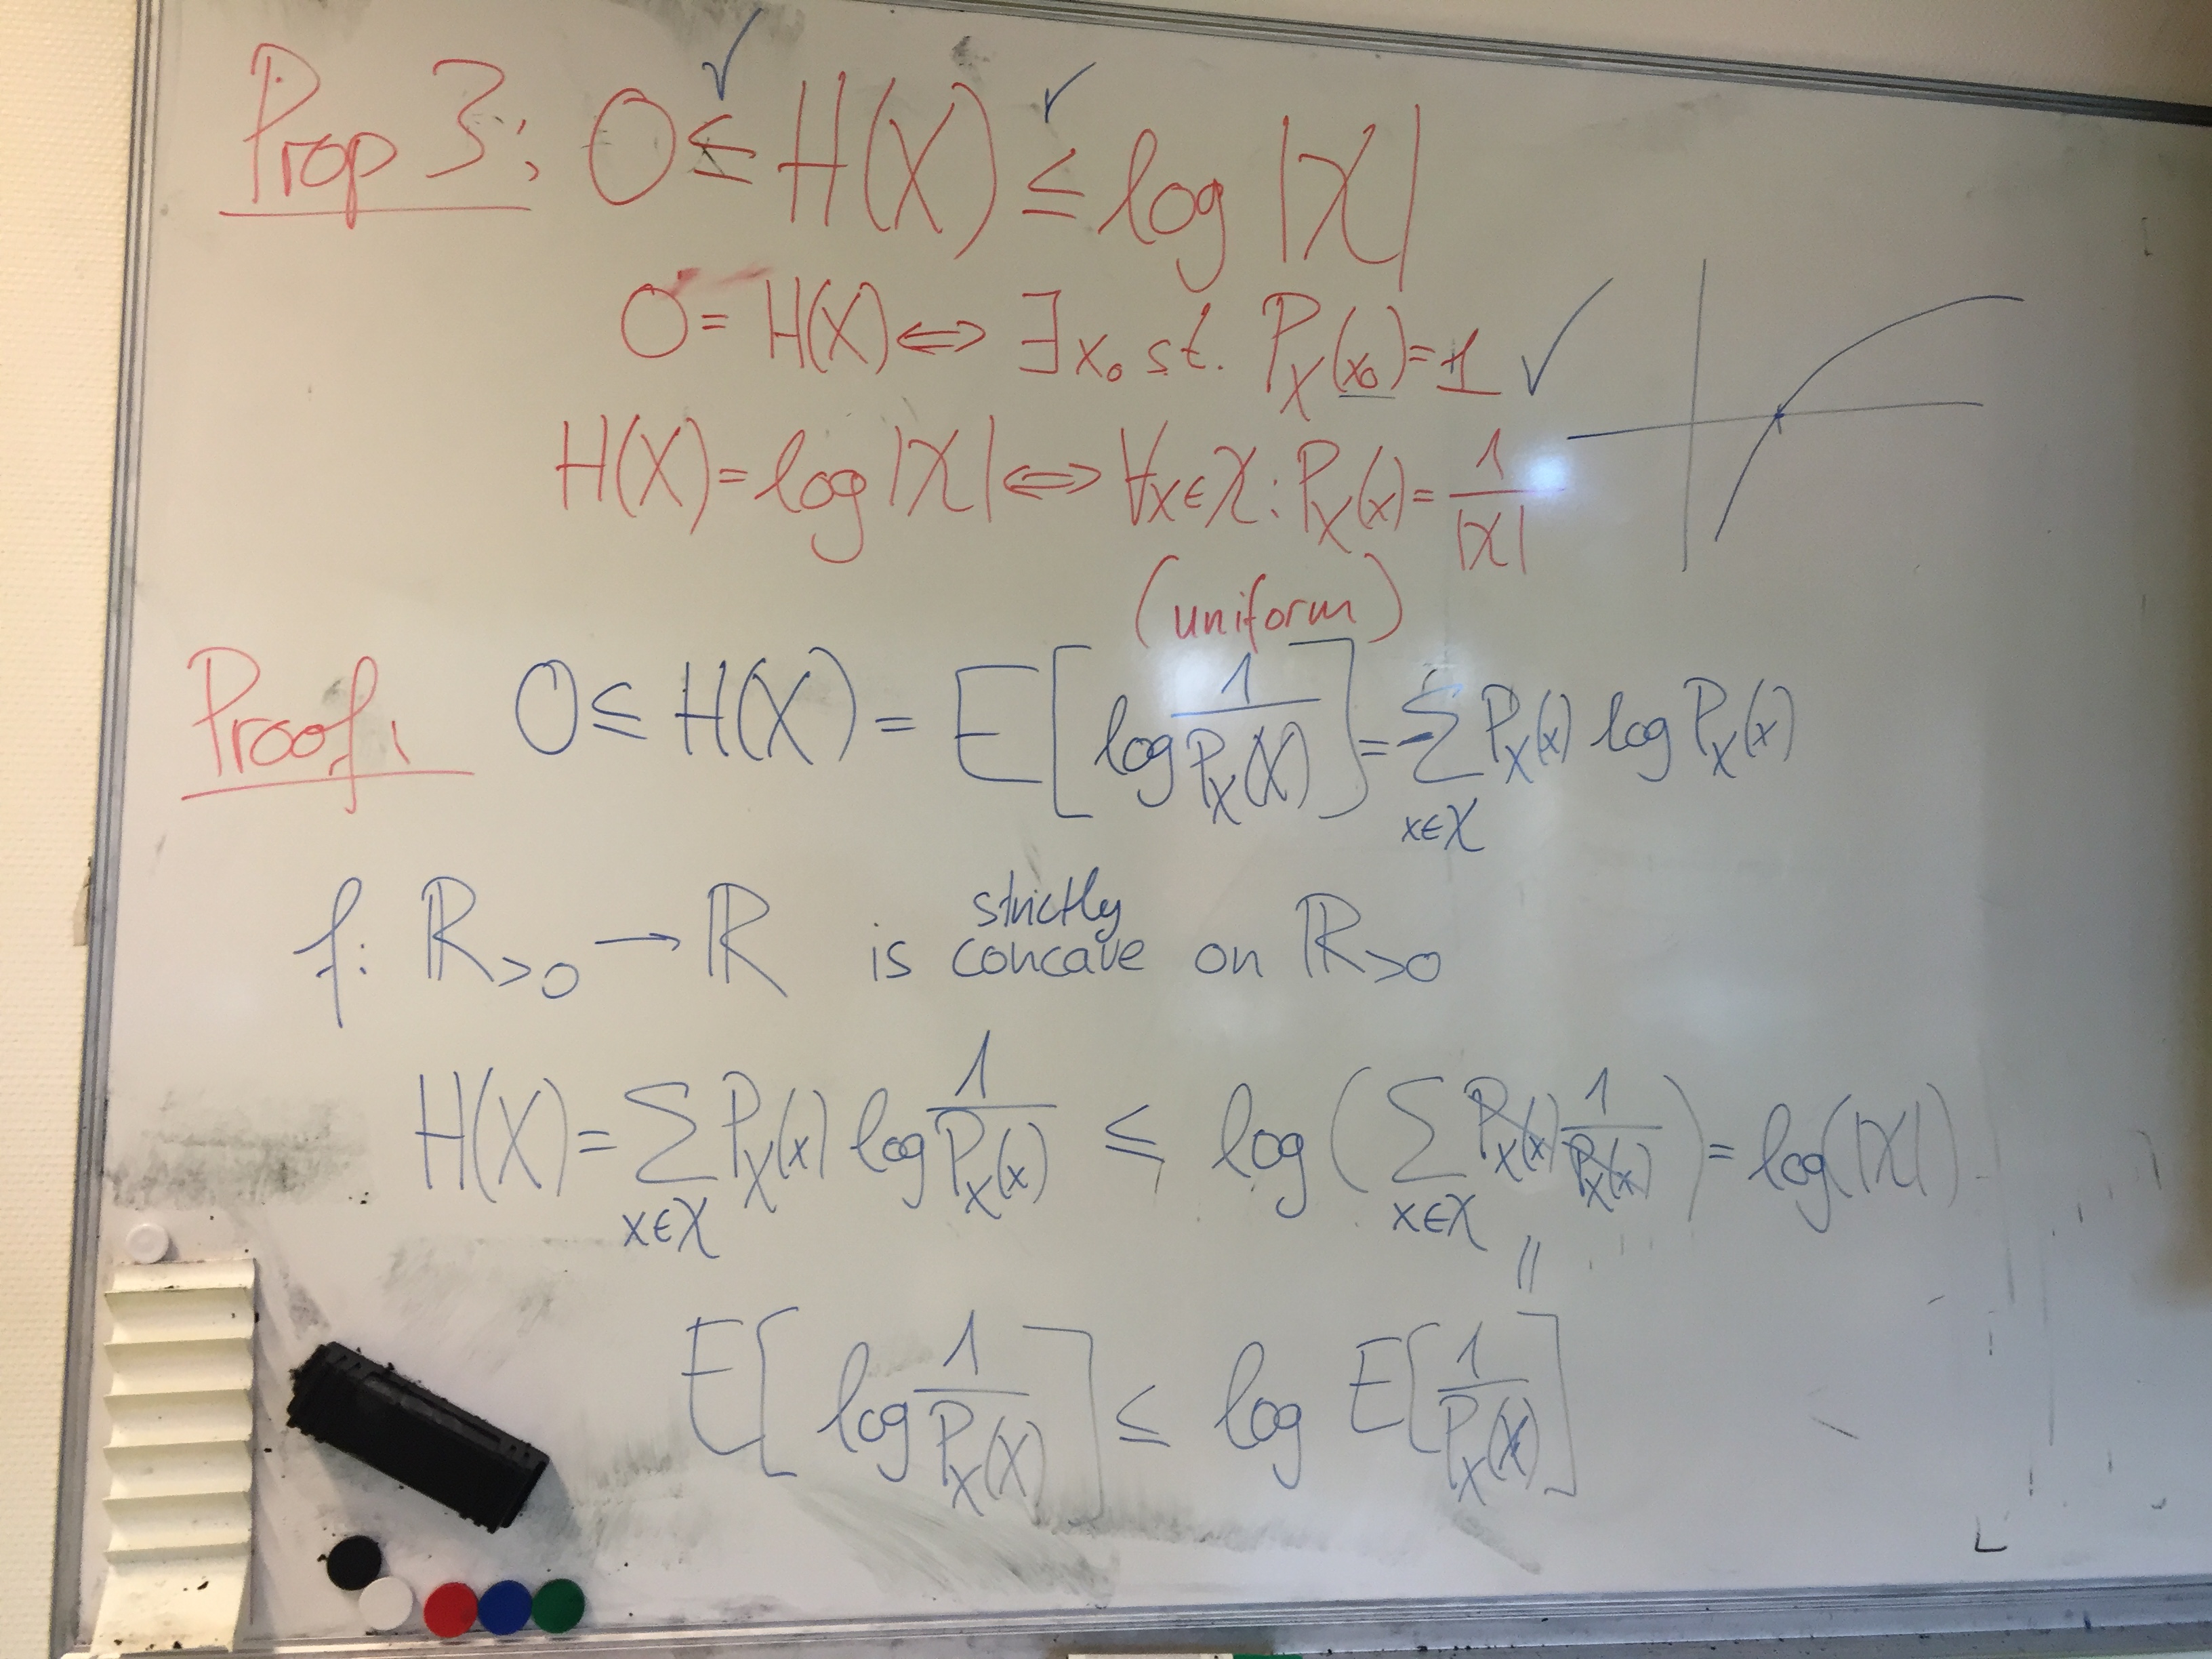 Prop 3: 0 ≤ H(X) ≤ log |𝒳|
0 = H(X) ⇔ ∃ x₀ st. P_X(x₀) = 1 ✓
H(X) = log |𝒳| ⇔ ∀x∈𝒳 : P_X(x) = 1/|𝒳|
(uniform)
Proof: 0 ≤ H(X) = E[log 1/P_X(X)] = -∑_{x∈𝒳} P_X(x) log P_X(x)
f: ℝ_{>0} → ℝ is strictly concave on ℝ_{>0}
H(X) = ∑_{x∈𝒳} P_X(x) log 1/P_X(x) ≤ log(∑_{x∈𝒳} P_X(x) 1/P_X(x)) = log(|𝒳|)
||
E[log 1/P_X(X)] ≤ log E[1/P_X(X)]